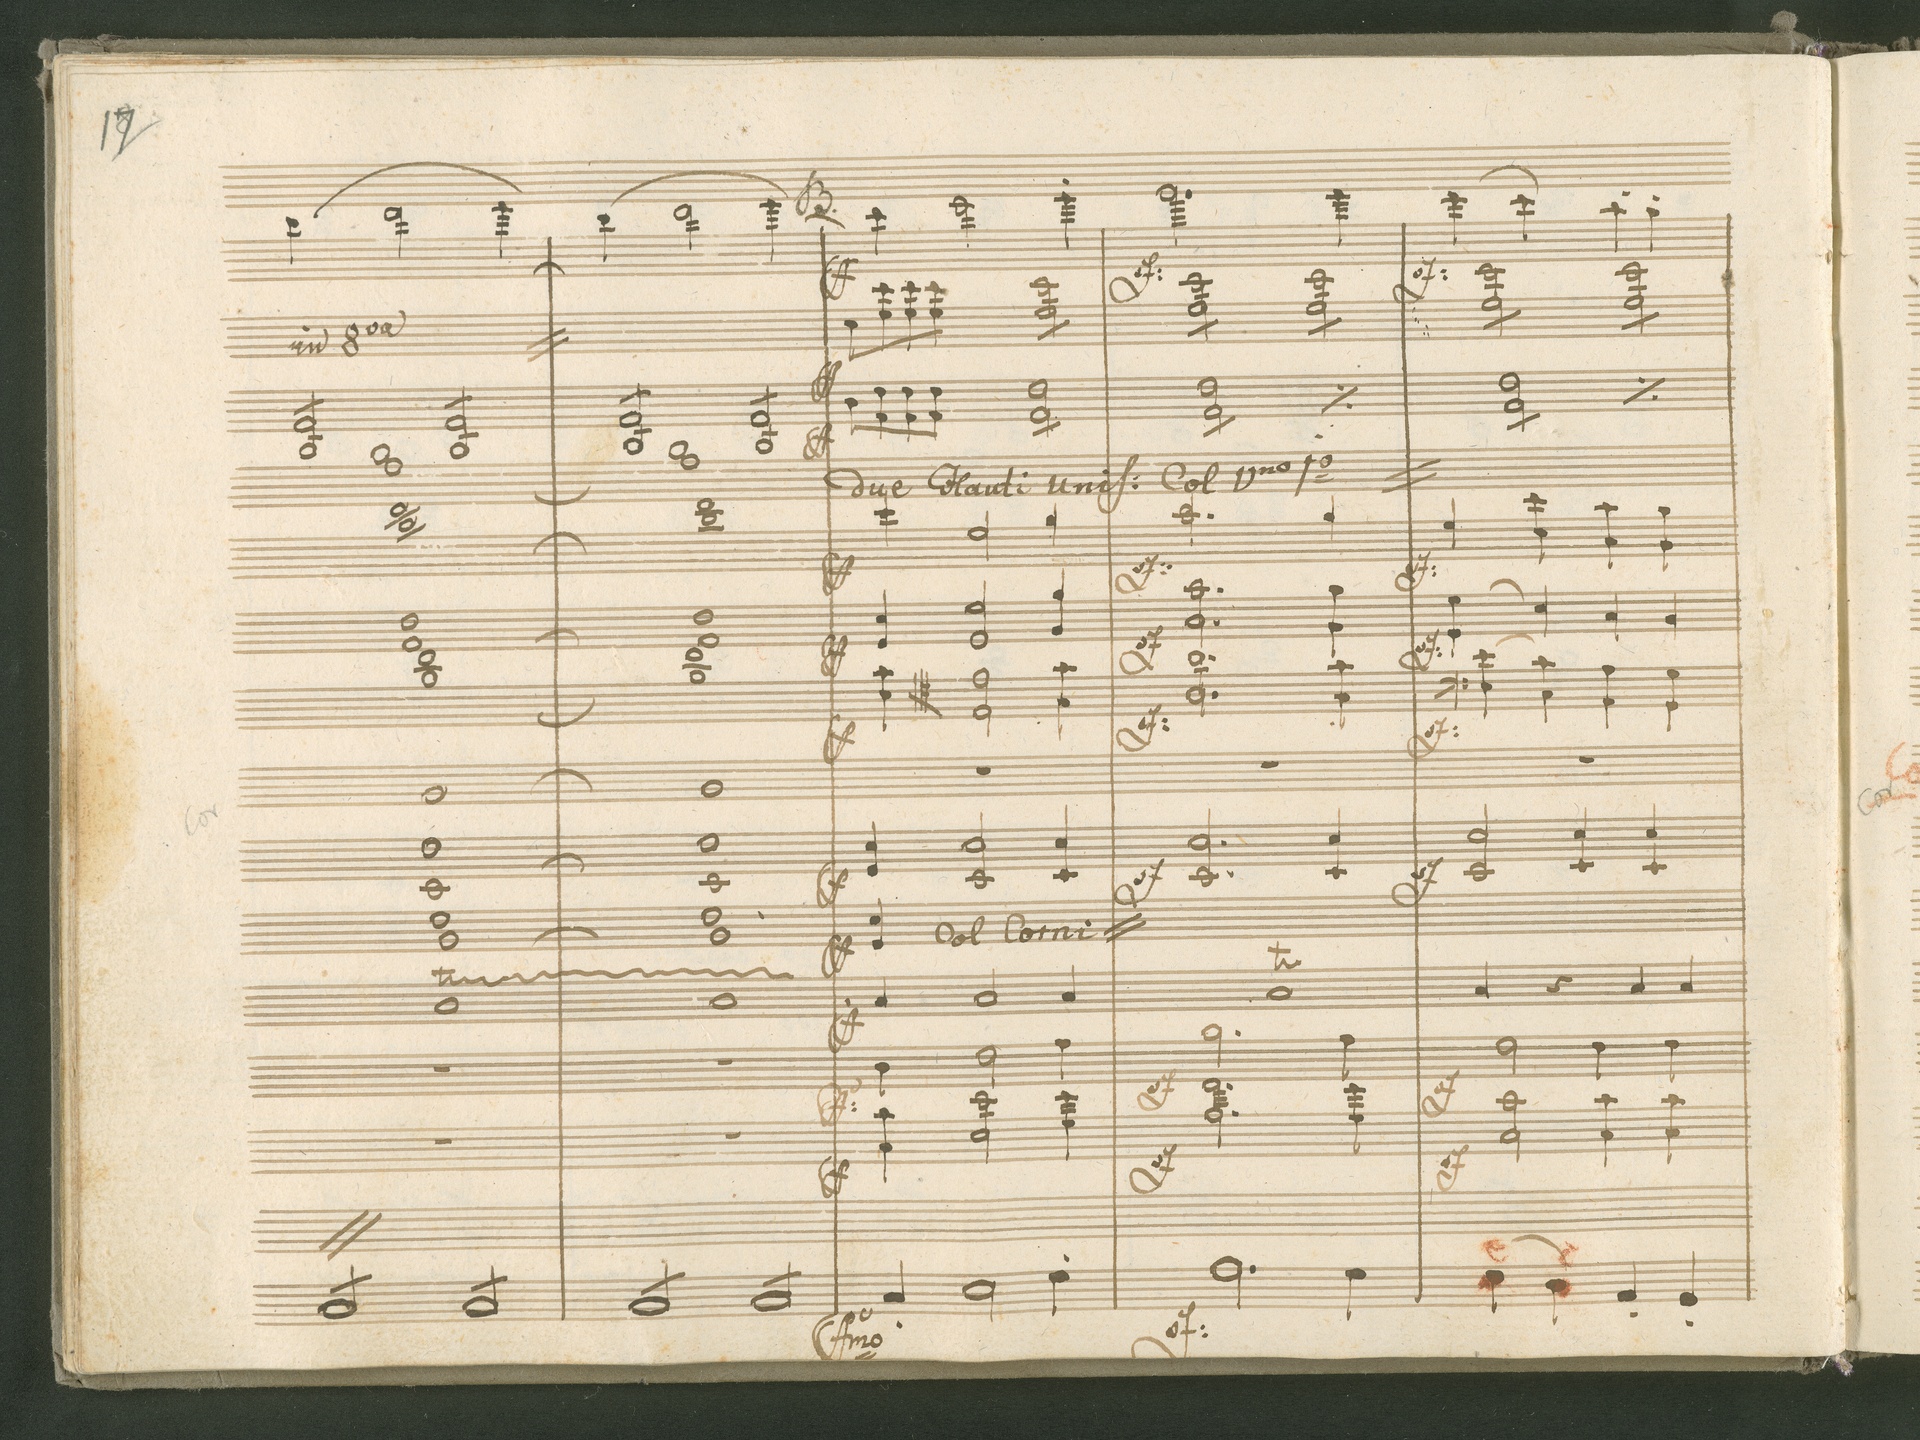 B.
ff
sf:
sf:
in 8va
ff
ff
due Flauti unis: Col Vmo 1o
ff
sf:
sf:
ff
sf
sf:
ff
sf:
sf:
Cor
ff
sf
sf
ff
Col Corni
tr
tr
ff
ff:
sf
sf
ff
sf
sf
ffmo
sf: